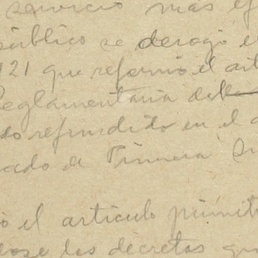 servicio mas ef
público se derogó e
921 que reformó el art
Reglamentaria del
do refundido en el a
gado de Primera In
o el articulo primit
dose los decretos qu